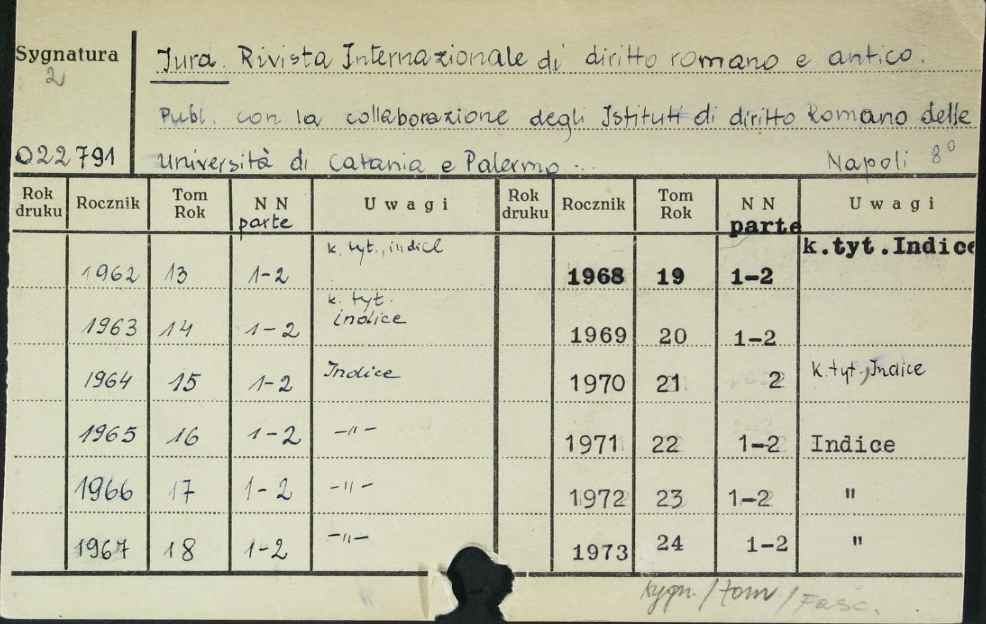 Sygnatura
2
022791
Jura. Rivista Internazionale di diritto romano e antico.
Publ. con la collaborazione degli Istituti di diritto Romano delle
Università di Catania e Palermo... Napoli 8°
Rok druku Rocznik Tom Rok NN parte Uwagi Rok druku Rocznik Tom Rok NN parte Uwagi
1962 13 1-2 k. tyt., indice 1968 19 1-2 k.tyt.Indice
1963 14 1-2 k. tyt. indice 1969 20 1-2
1964 15 1-2 Indice 1970 21 2 k.tyt., Indice
1965 16 1-2 -"- 1971 22 1-2 Indice
1966 17 1-2 -"- 1972 23 1-2 "
1967 18 1-2 -"- 1973 24 1-2 "
sygn. / tom / Fasc.